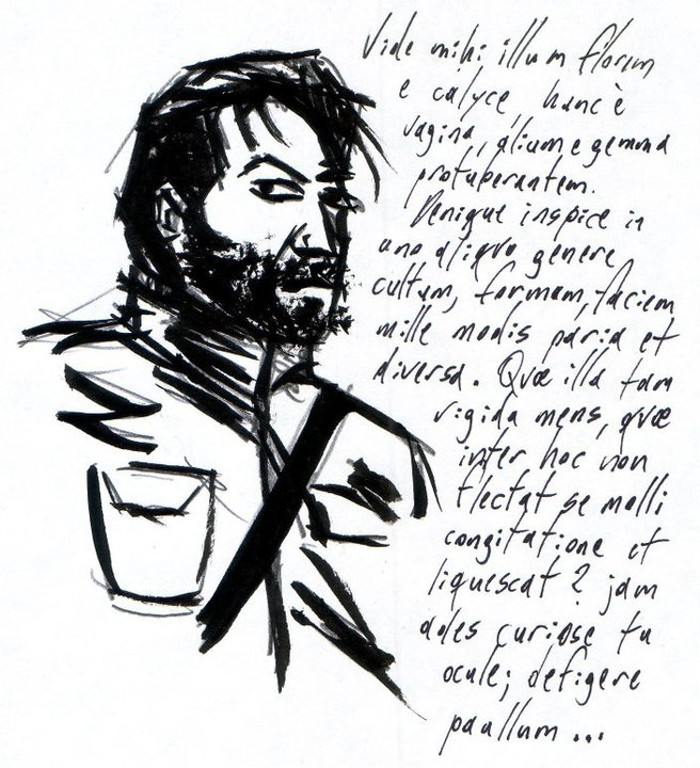 Vide mihi illum florem
e calyce, hunc è
vagina, alium e gemma
protuberantem.
Denique inspice in
uno aliquo genere
cultum, formam, faciem
mille modis paria et
diversa. Quæ illa tam
rigida mens, quæ
inter hoc non
flectat se molli
congitatione et
liquescat? jam
ades curiose tu
ocule; defigere
paullum...